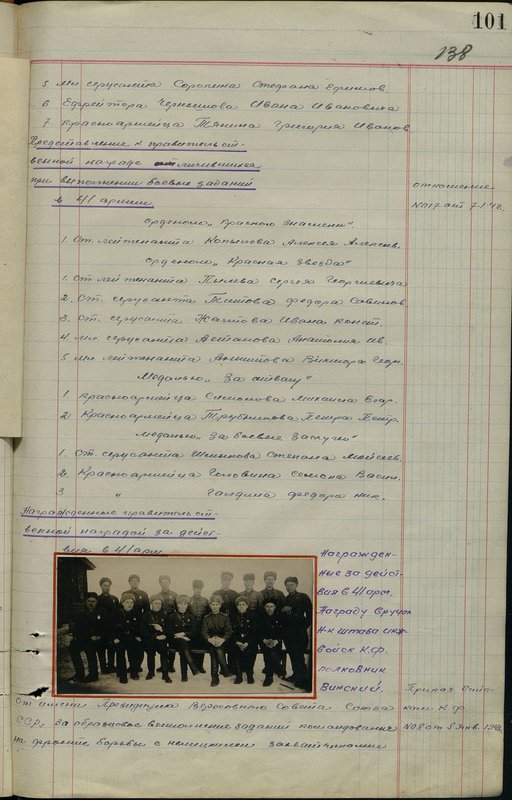 101
138
5 Мл. сержанта Сорокина Стефана Ефимов.
6 Ефрейтора Чернышова Ивана Ивановича
7. Красноармейца Тянина Григория Иванов
Представление к правительст-
венной награде отличившихся
при выполнении боевых заданий
в 41 армии
отношение
№017 от 7-1-43.
Орденом „Красного Знамени".
1. Ст. лейтенанта Копылова Алексея Алексеев.
Орденом „Красная Звезда"
1. Ст. лейтенанта Пылева Сергея Георгиевича
2. Ст. сержанта Титова Федора
3. Ст. сержанта Ивана Конст.
4. Мл. сержанта Анатолия Ив.
5 Мл. лейтенанта Виктора Геор.
Медалью „За отвагу"
1. Красноармейца Симонова Михаила Егор.
2 Красноармейца Трубникова Петра Петр.
Медалью „За боевые заслуги"
1. Ст. сержанта Степана Моисеев.
2. Красноармейца Головина Семена Васил.
3 " Галдина Федора Ник.
Награжденные правительст-
венной наградой за дейст-
вия в 41 арм.
Награжден-
ные за дейст-
вия в 41 арм.
Награду вручил
Н-к штаба инж
войск К.Ф.
полковник
Винский.
Приказ войс-
кам К.Ф.
№08 от 5 янв. 1943
От имени Президиума Верховного Совета Союза
ССР, за образцовое выполнение заданий командования
на фронте борьбы с немецкими захватчиками